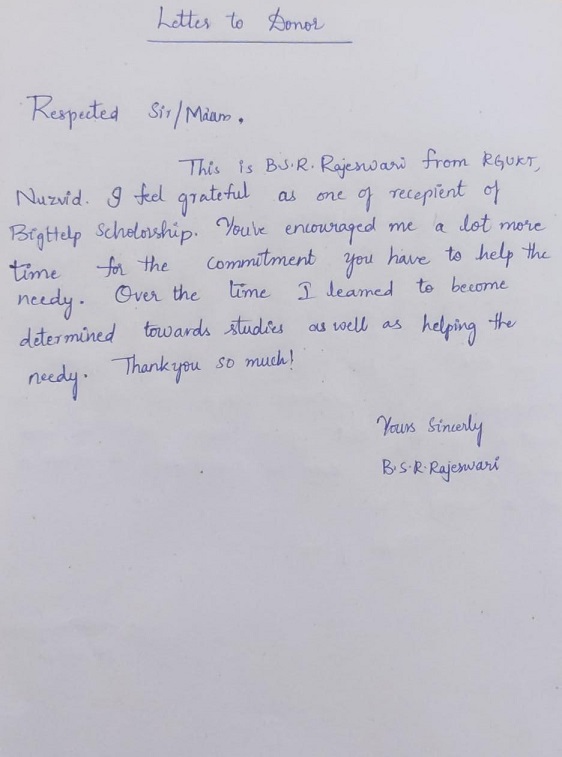 Letter to Donor
Respected Sir/Maam.
This is B.S.R. Rajeswari from RGUKT,
Nuzvid. I feel grateful as one of recepient of
BigHelp Scholorship. You've encouraged me a lot more
time for the commitment you have to help the
needy. Over the time I learned to become
determined towards studies as well as helping the
needy. Thankyou so much!
Yours Sincerly
B.S.R.Rajeswari